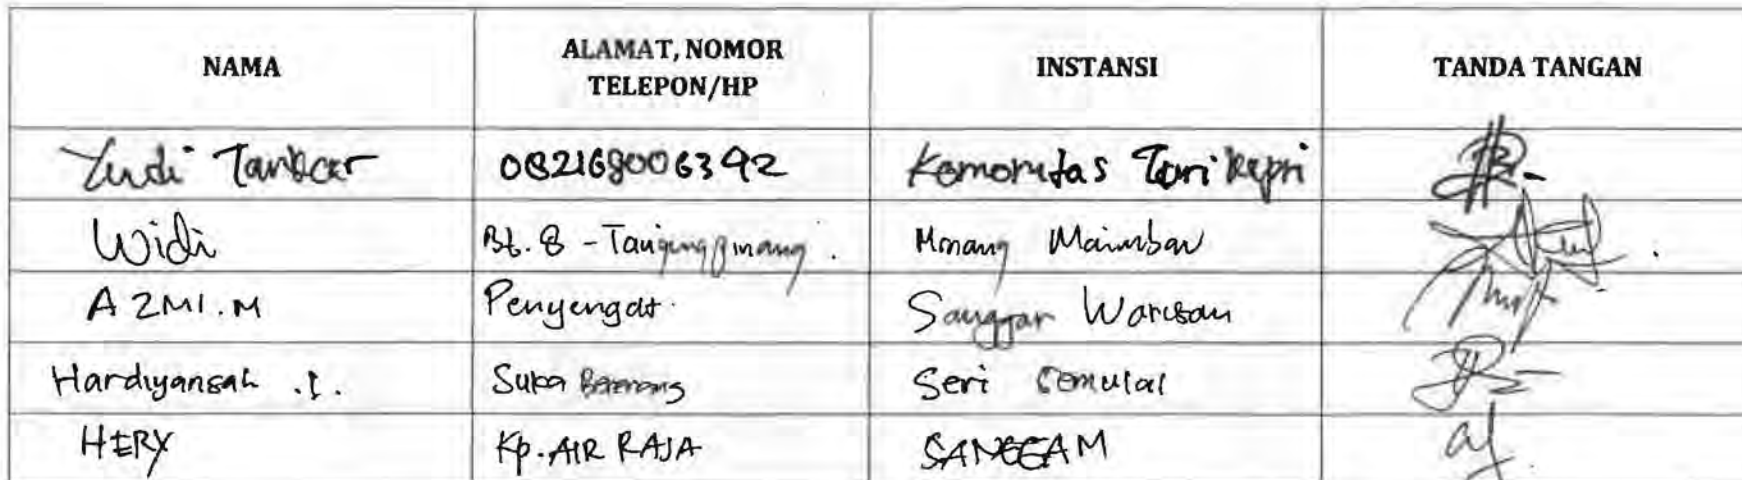 NAMA ALAMAT, NOMOR TELEPON/HP INSTANSI TANDA TANGAN
Yudi 082168006392 Tari Kepri
Widi Bt. 8 - Tanjungpinang. Minang Maimbau
AZMI.M Penyengat. Sanggar Warisan
Hardiyansah .I. Suka Berenang Seri
HERY Kp. AIR RAJA SANGGAM